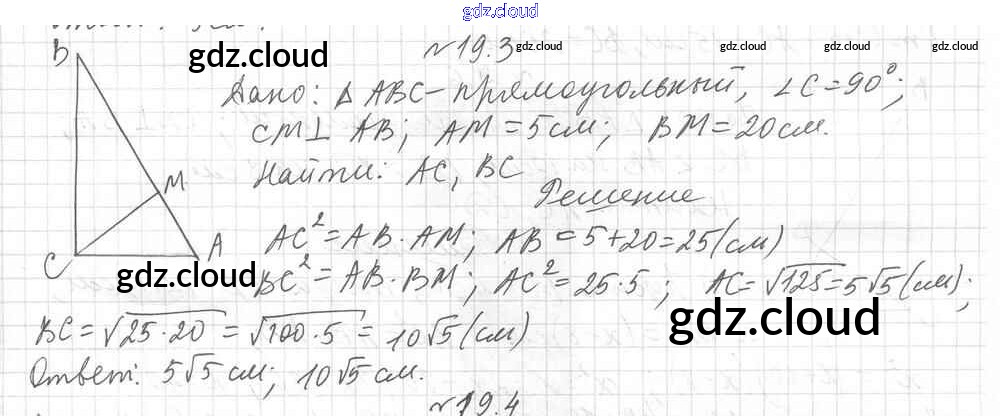 gdz.cloud
№19.3 gdz.cloud gdz.cloud gdz.cloud gdz.cloud
B
gdz.cloud
Дано: Δ ABC - прямоугольный, ∠C = 90°;
CM ⊥ AB; AM = 5 см; BM = 20 см.
Найти: AC, BC
M
Решение
AC² = AB · AM; AB = 5 + 20 = 25 (см)
C A
gdz.cloud
BC² = AB · BM; AC² = 25 · 5; AC = √125 = 5√5 (см);
gdz.cloud
BC = √25 · 20 = √100 · 5 = 10√5 (см)
Ответ: 5√5 см; 10√5 см.
№19.4